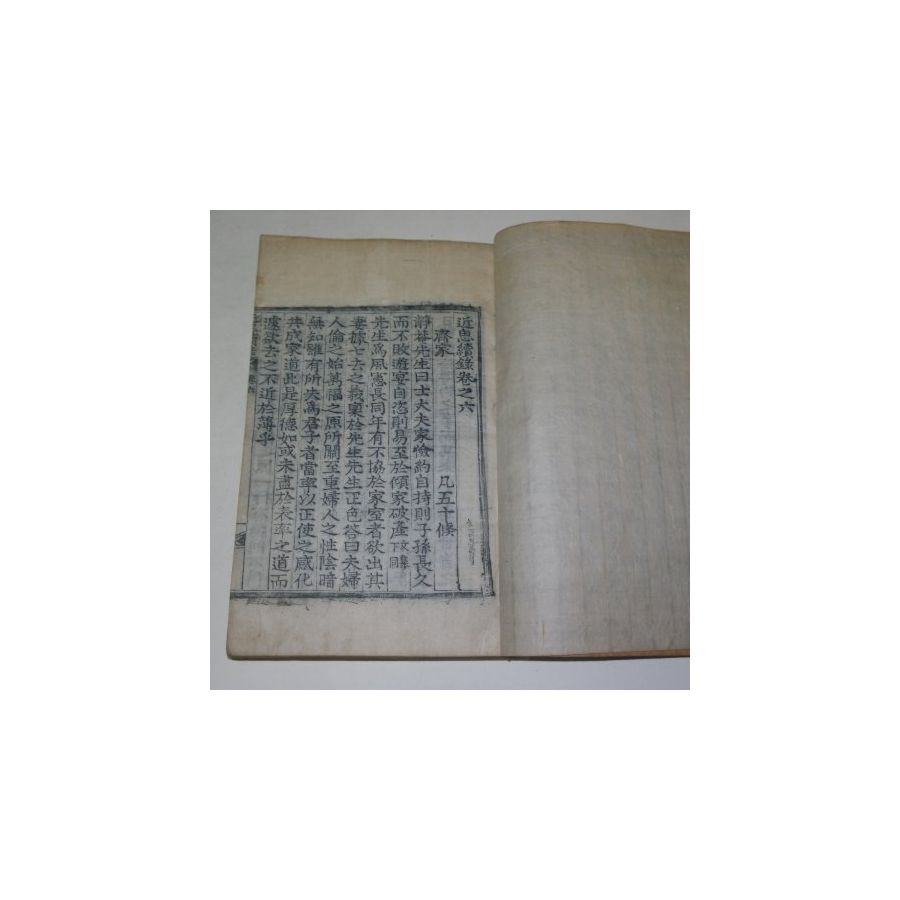 近思續錄卷之六
齊家 凡五十條
靜菴先生曰士大夫家儉約自持則子孫長久
而不敗遊宴自恣則易至於傾家破產 文集下同
先生爲風憲長同年有不協於家室者欲出其
妻據七去之義稟於先生先生正色答曰夫婦
人倫之始萬福之原所關至重婦人之性陰暗
無知雖有所失爲君子者當率以正使之感化
共成家道此是厚德如或未盡於表率之道而
遽欲去之不近於薄乎